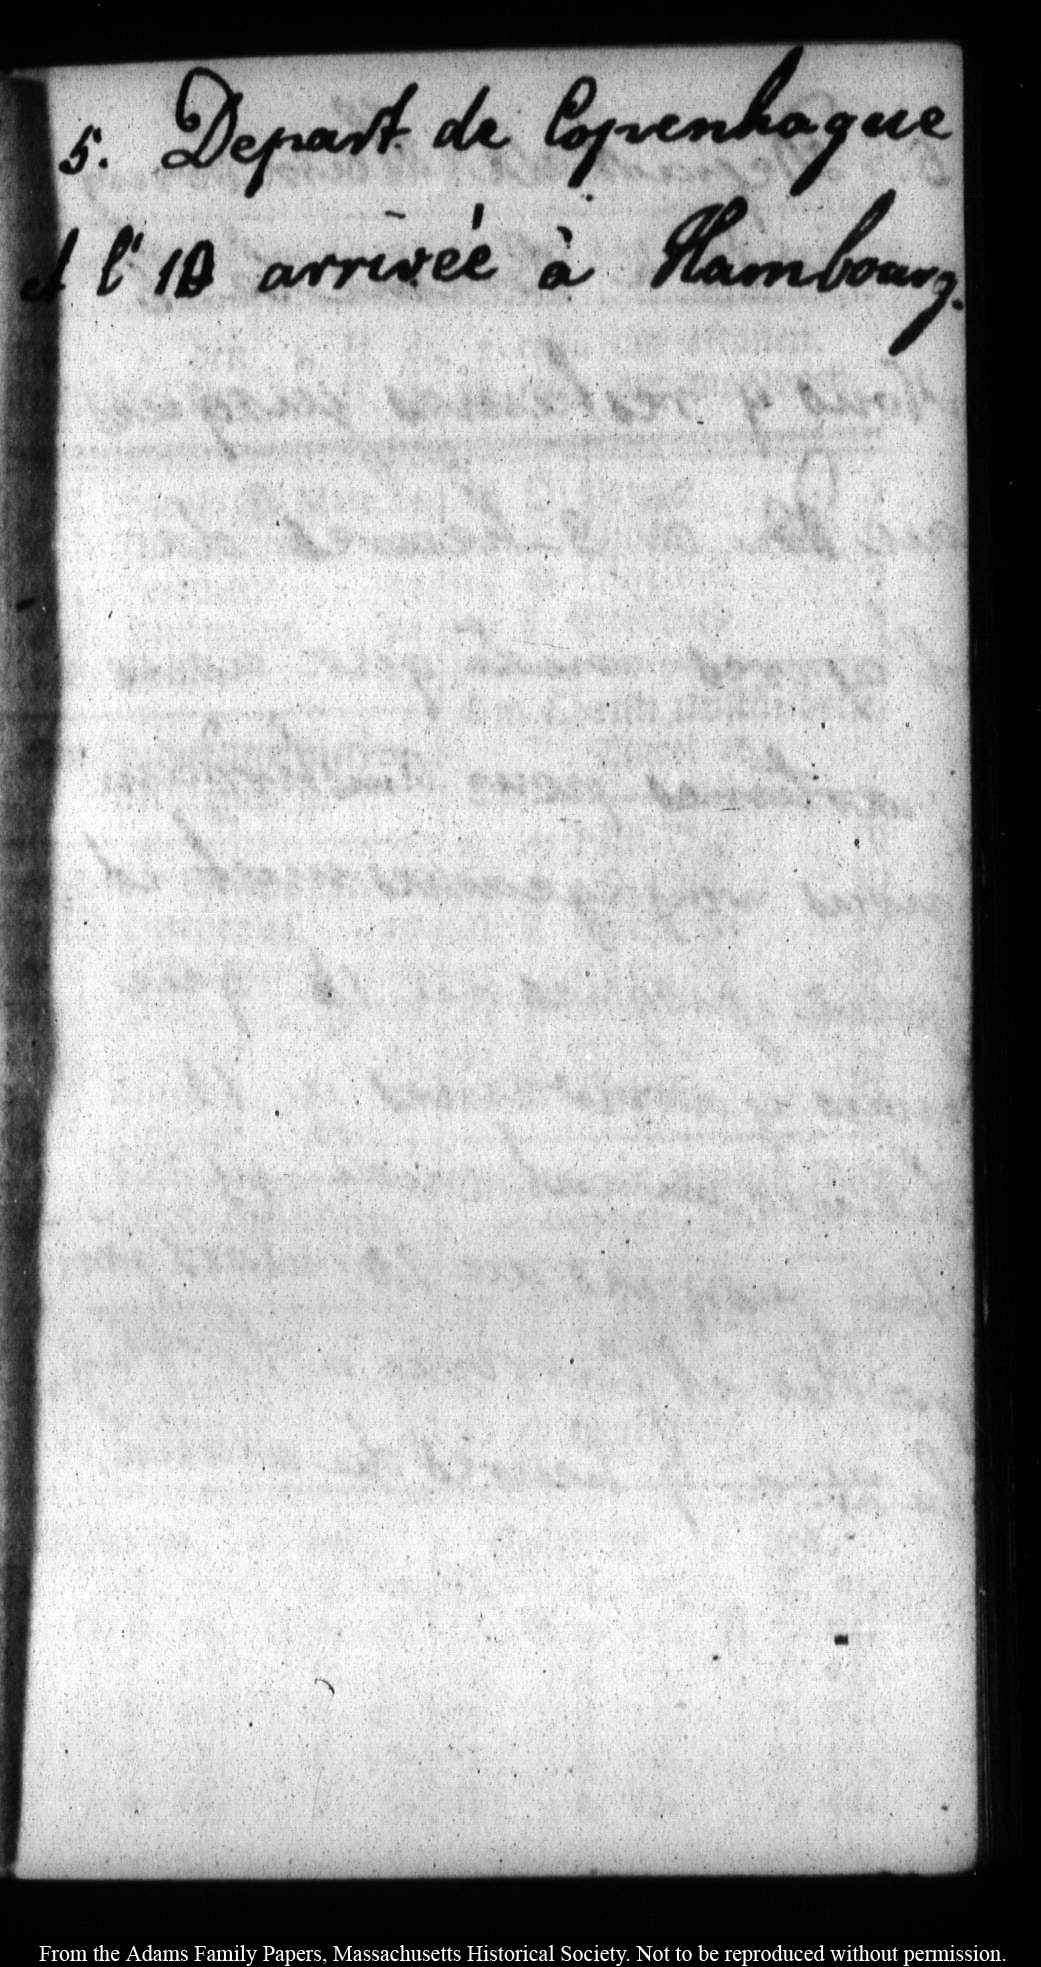 5. Depart de Copenhague
et l' 10 arrivée à Hambourg.
From the Adams Family Papers, Massachusetts Historical Society. Not to be reproduced without permission.